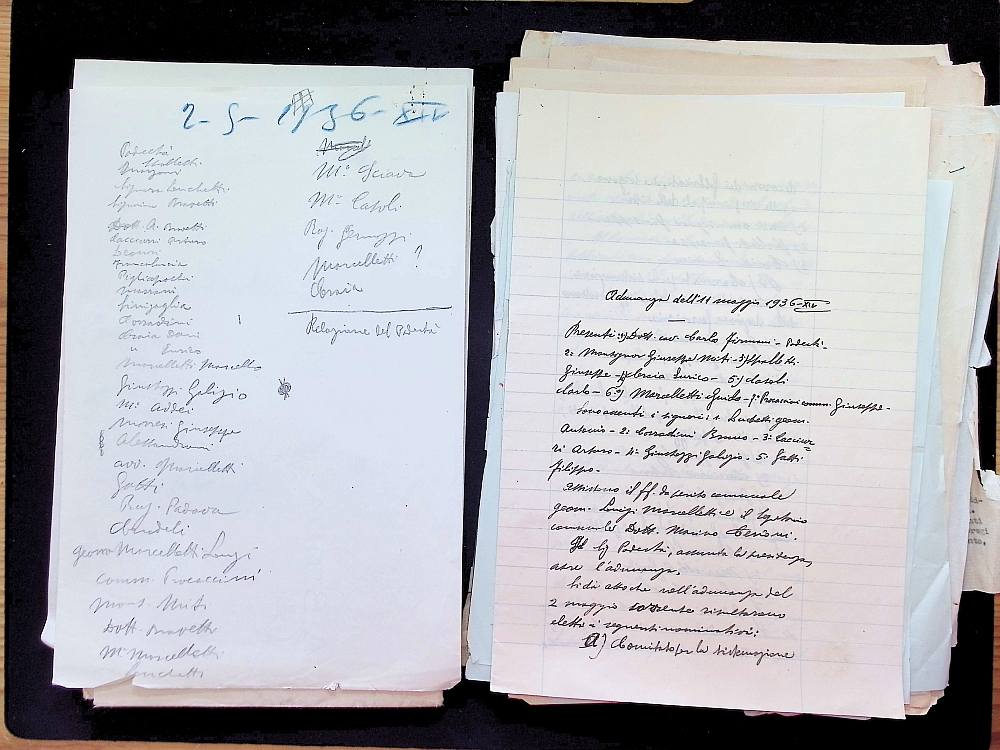 2-5-1936-XIV
Podestà
Spalletti
Signora Lucchetti
Signorina Bravetti
Dott. A. Bravetti
Cacciurri Arturo
Francalancia
Pigliapochi
Mariani
Sinigaglia
Corradini
Obraia Dario
" Enrico
Marcelletti Marcello
Giuseppi Galizio
M° Addei
Moresi Giuseppe
Alessandroni
avv. Marcelletti
Gatti
Rag. Padova
geom Marcelletti Luigi
comm. Procaccini
mons. Miti
Dott. Bravetti
M° Marcelletti
Lucchetti
M° Sciava
M° Casoli
Rag.
Marcelletti ?
Obraia
Relazione del Podestà
Adunanza dell'11 maggio 1936-XIV
Presenti: 1) Dott. cav. Carlo Firmani - Podestà -
2: Monsignor Giuseppe Miti - 3) Spalletti
Giuseppe - 4) Obraia Enrico - 5) Casoli
Carlo - 6) Marcelletti Guido - 7: Procaccini comm. Giuseppe -
Sono assenti i signori: 1: Lucchetti geom.
Antonio - 2: Corradini Bruno - 3: Cacciur
ri Arturo - 4: Giuseppi Galizio - 5: Gatti
Filippo -
Assistono il ff. da perito comunale
geom. Luigi Marcelletti e il segretario
comunale Dott. Marino
Il Podestà, assunta la presidenza,
apre l'adunanza.
Si dà atto che nell'adunanza del
2 maggio corrente risultarono
eletti i seguenti nominativi:
A) Comitato per la sistemazione